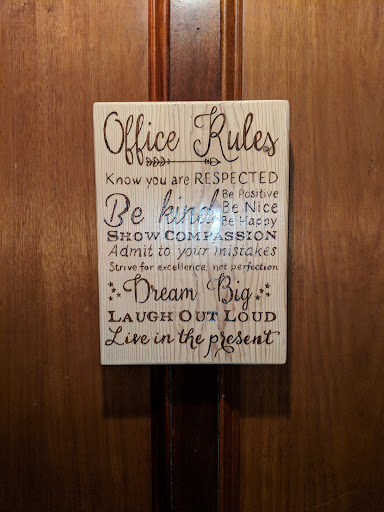 Office Rules
Know you are RESPECTED
Be kind
Be Positive
Be Nice
Be Happy
SHOW COMPASSION
Admit to your mistakes
Strive for excellence, not perfection
Dream Big
LAUGH OUT LOUD
Live in the present